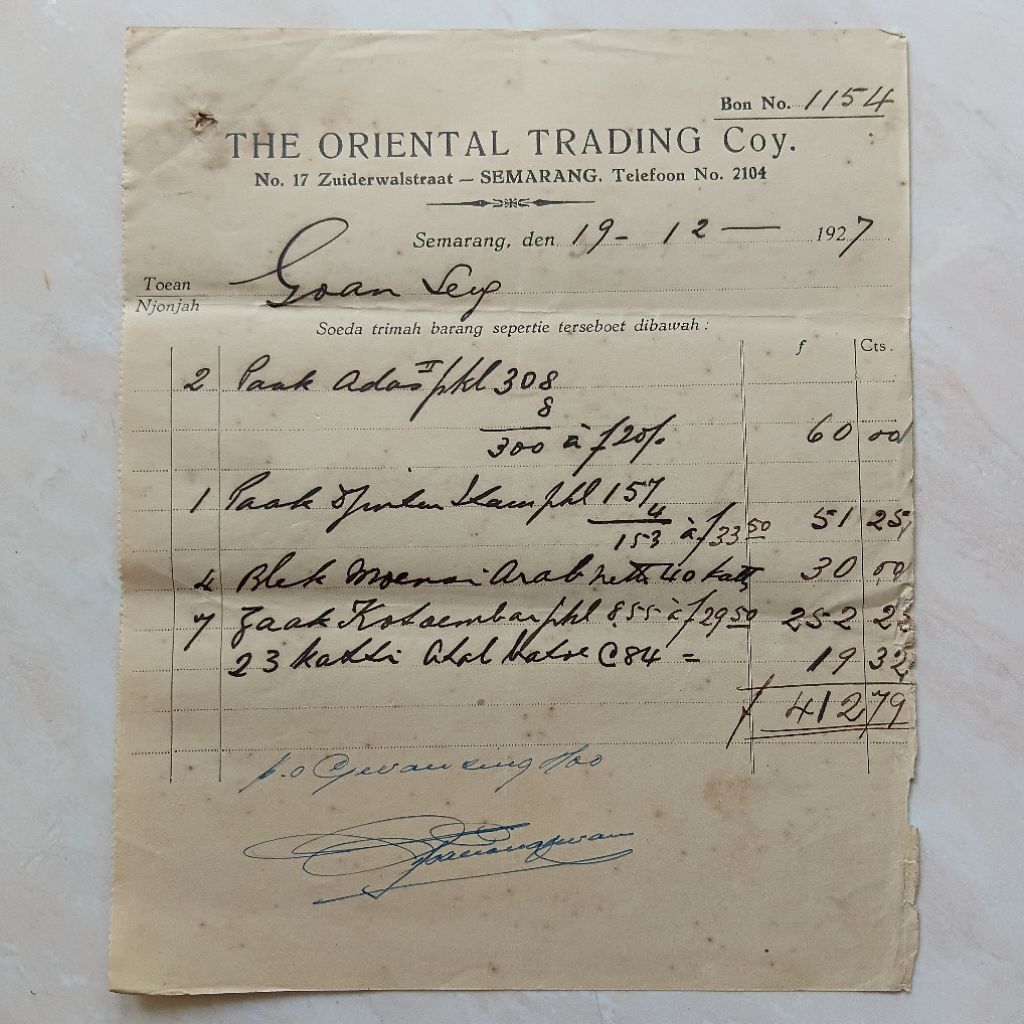 Bon No. 1154
THE ORIENTAL TRADING Coy.
No. 17 Zuiderwalstraat — SEMARANG. Telefoon No. 2104
Semarang, den 19 - 12 — 1927
Toean
Njonjah
Goan Seng
Soeda trimah barang sepertie terseboet dibawah:
f Cts.
2 Paak Adas II pkl 308
8
300 à f 20/- 60 00
1 Paak pkl 157
4
153 à f 33 50 51 25
4 Blek Arab netto 40 katti 30 00
7 Zaak Ketoembar pkl 8.55 à f 29 50 252 23
23 katti C 84 = 19 32
f 412 79
p.o